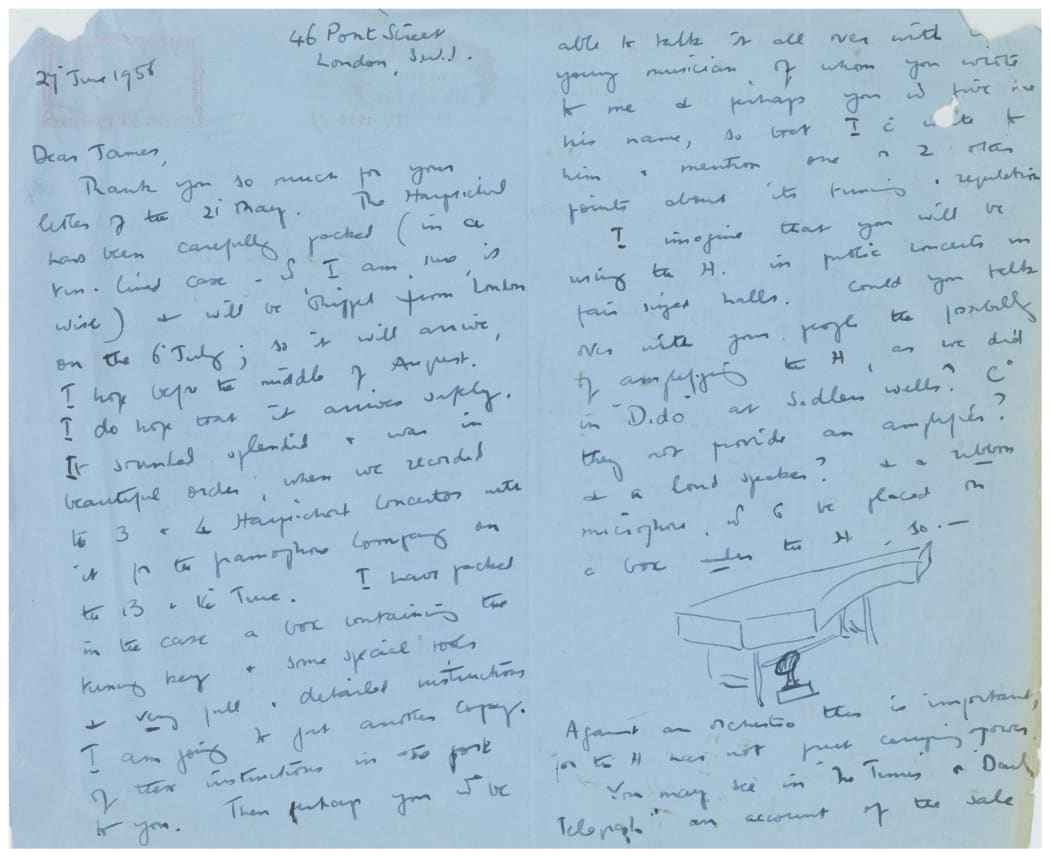 46 Pont Street
London, S.W.1.
27 June 1956
Dear James,
Thank you so much for your
letter of the 21 May. The Harpsichord
has been carefully packed (in a
tin-lined case - I am sure, is
wise) & will be shipped from London
on the 6 July; so it will arrive,
I hope before the middle of August.
I do hope that it arrives safely.
It sounded splendid & was in
beautiful order, when we recorded
the 3 & 4 Harpsichord Concertos with
it for the Gramophone Company on
the 13 & 14 June. I have packed
in the case a box containing the
tuning key & some special tools
& very full & detailed instructions
I am going to put another copy
of these instructions in the post
to you. Then perhaps you be
able to talk it all over with
young musician, of whom you wrote
to me & perhaps you give me
his name, so that I write to
him & mention one or 2 other
points about its tuning & regulation
I imagine that you will be
using the H. in public concerts in
fair sized halls. Could you talk
over with your people the possibility
of amplifying the H, as we did
in "Dido" at Sadlers Wells? Cd
they not provide an amplifier?
& a loud speaker? & a ribbon
microphone, be placed on
a box under the H, so.—
Against an orchestra this is important,
for the H has not great carrying power.
You may see in "The Times & Daily
Telegraph" an account of the sale